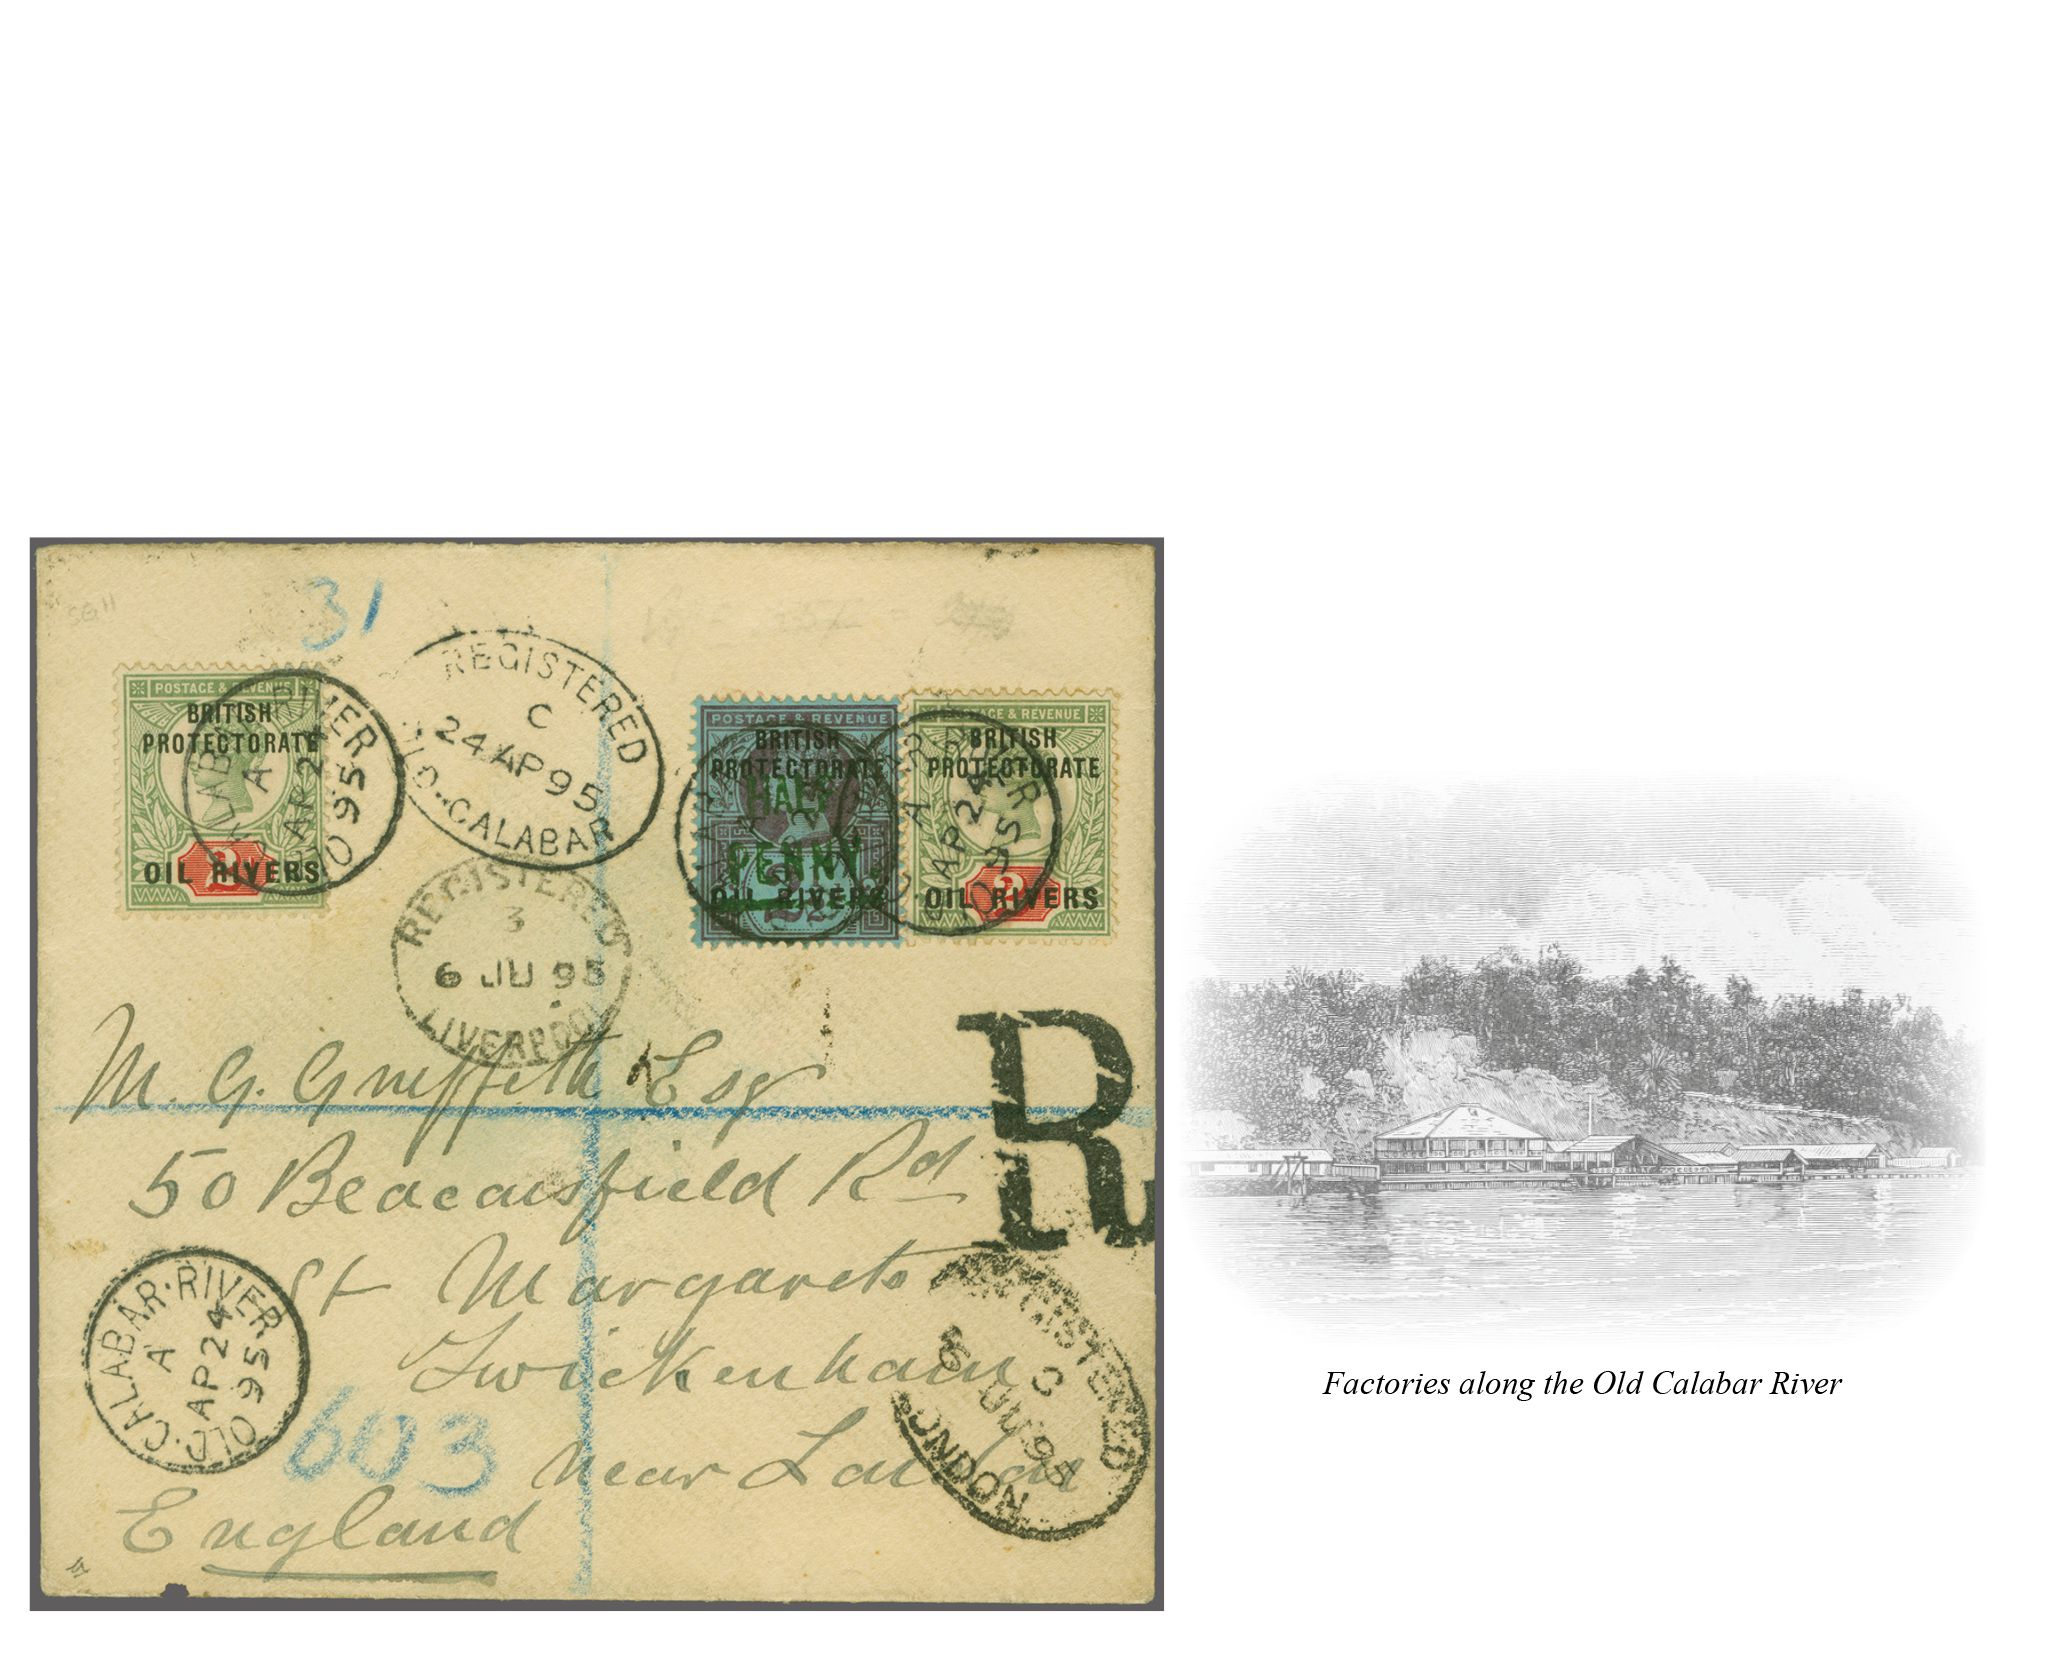 SG 11
31
POSTAGE & REVENUE
BRITISH
PROTECTORATE
OIL RIVERS
2
OLD·CALABAR·RIVER
A
AP 24
95
REGISTERED
C
24 AP 95
OLD·CALABAR
POSTAGE & REVENUE
BRITISH
PROTECTORATE
HALF
PENNY.
OIL RIVERS
POSTAGE & REVENUE
BRITISH
PROTECTORATE
OIL RIVERS
2
RIVER
A
AP 24
95
REGISTERED
3
6 JU 95
LIVERPOOL
M. G. Griffith Esq
50 Beacansfield Rd
St Margarets
Twickenham
near London
England
R
OLD·CALABAR·RIVER
A
AP 24
95
603
REGISTERED
C
6 JU 95
LONDON
Factories along the Old Calabar River